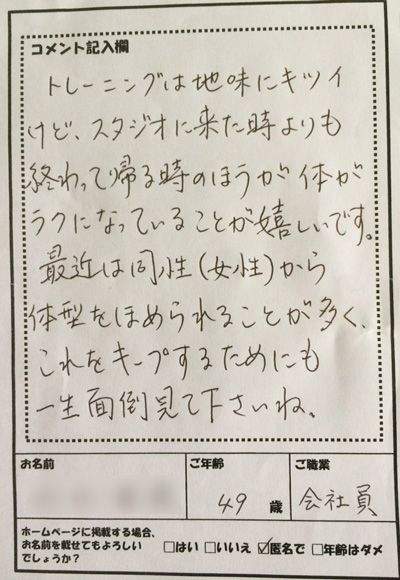 コメント記入欄
トレーニングは地味にキツイ
けど、スタジオに来た時よりも
終わって帰る時のほうが体が
ラクになっていることが嬉しいです。
最近は同性(女性)から
体型をほめられることが多く、
これをキープするためにも
一生面倒見て下さいね。
お名前
ご年齢
49 歳
ご職業
会社員
ホームページに掲載する場合、
お名前を載せてもよろしい
でしょうか?
□はい □いいえ ☑匿名で □年齢はダメ